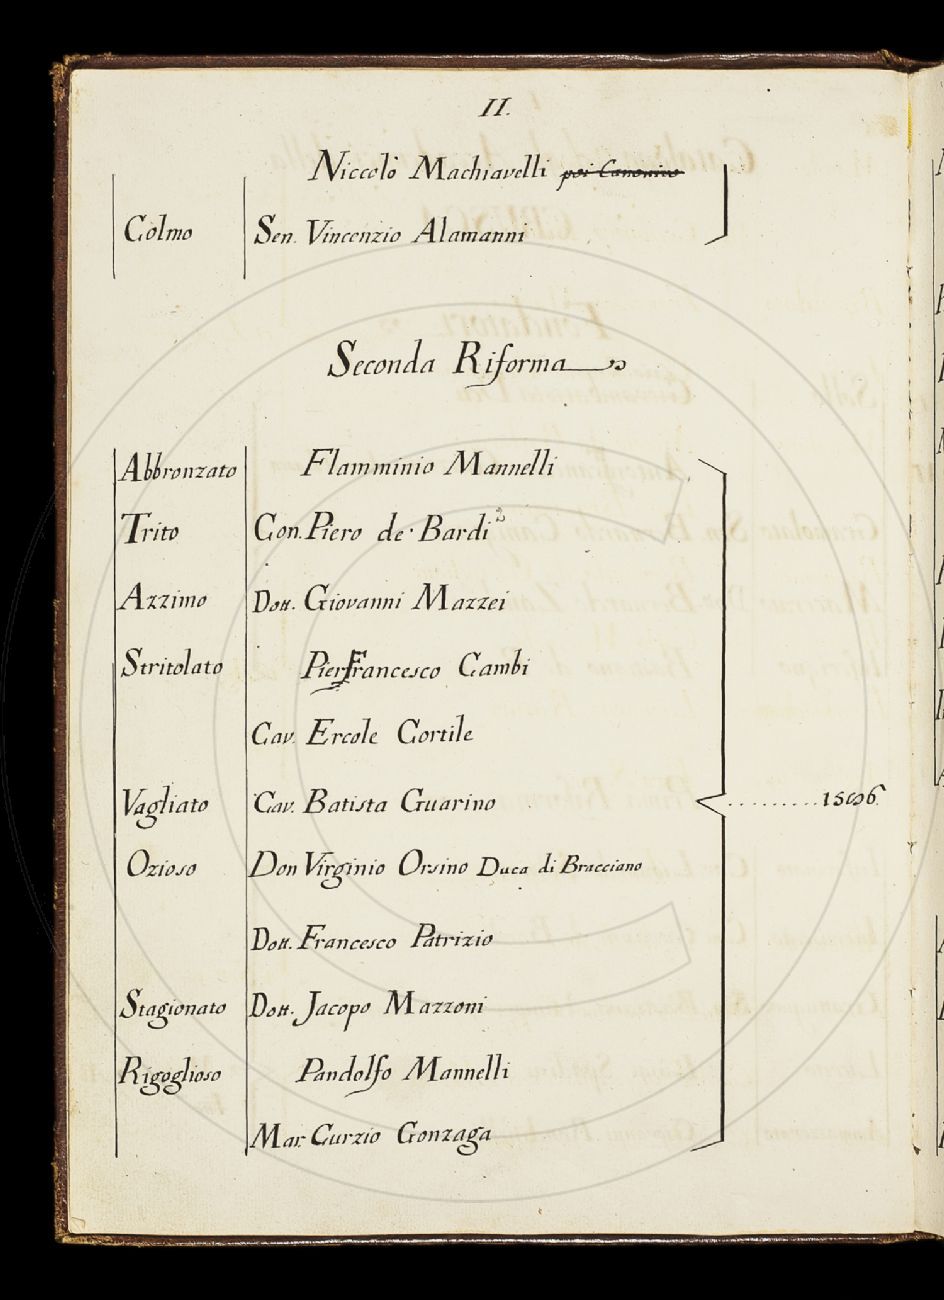 II.
Niccolò Machiavelli poi Canonico
Colmo Sen. Vincenzio Alamanni
Seconda Riforma
Abbronzato Flamminio Mannelli
Trito Con. Piero de' Bardi
Azzimo Dott. Giovanni Mazzei
Stritolato PierFrancesco Cambi
Cav. Ercole Cortile
Vagliato Cav. Batista Guarino
Ozioso Don Virginio Orsino Duca di Bracciano
Dott. Francesco Patrizio
Stagionato Dott. Jacopo Mazzoni
Rigoglioso Pandolfo Mannelli
Mar. Curzio Gonzaga